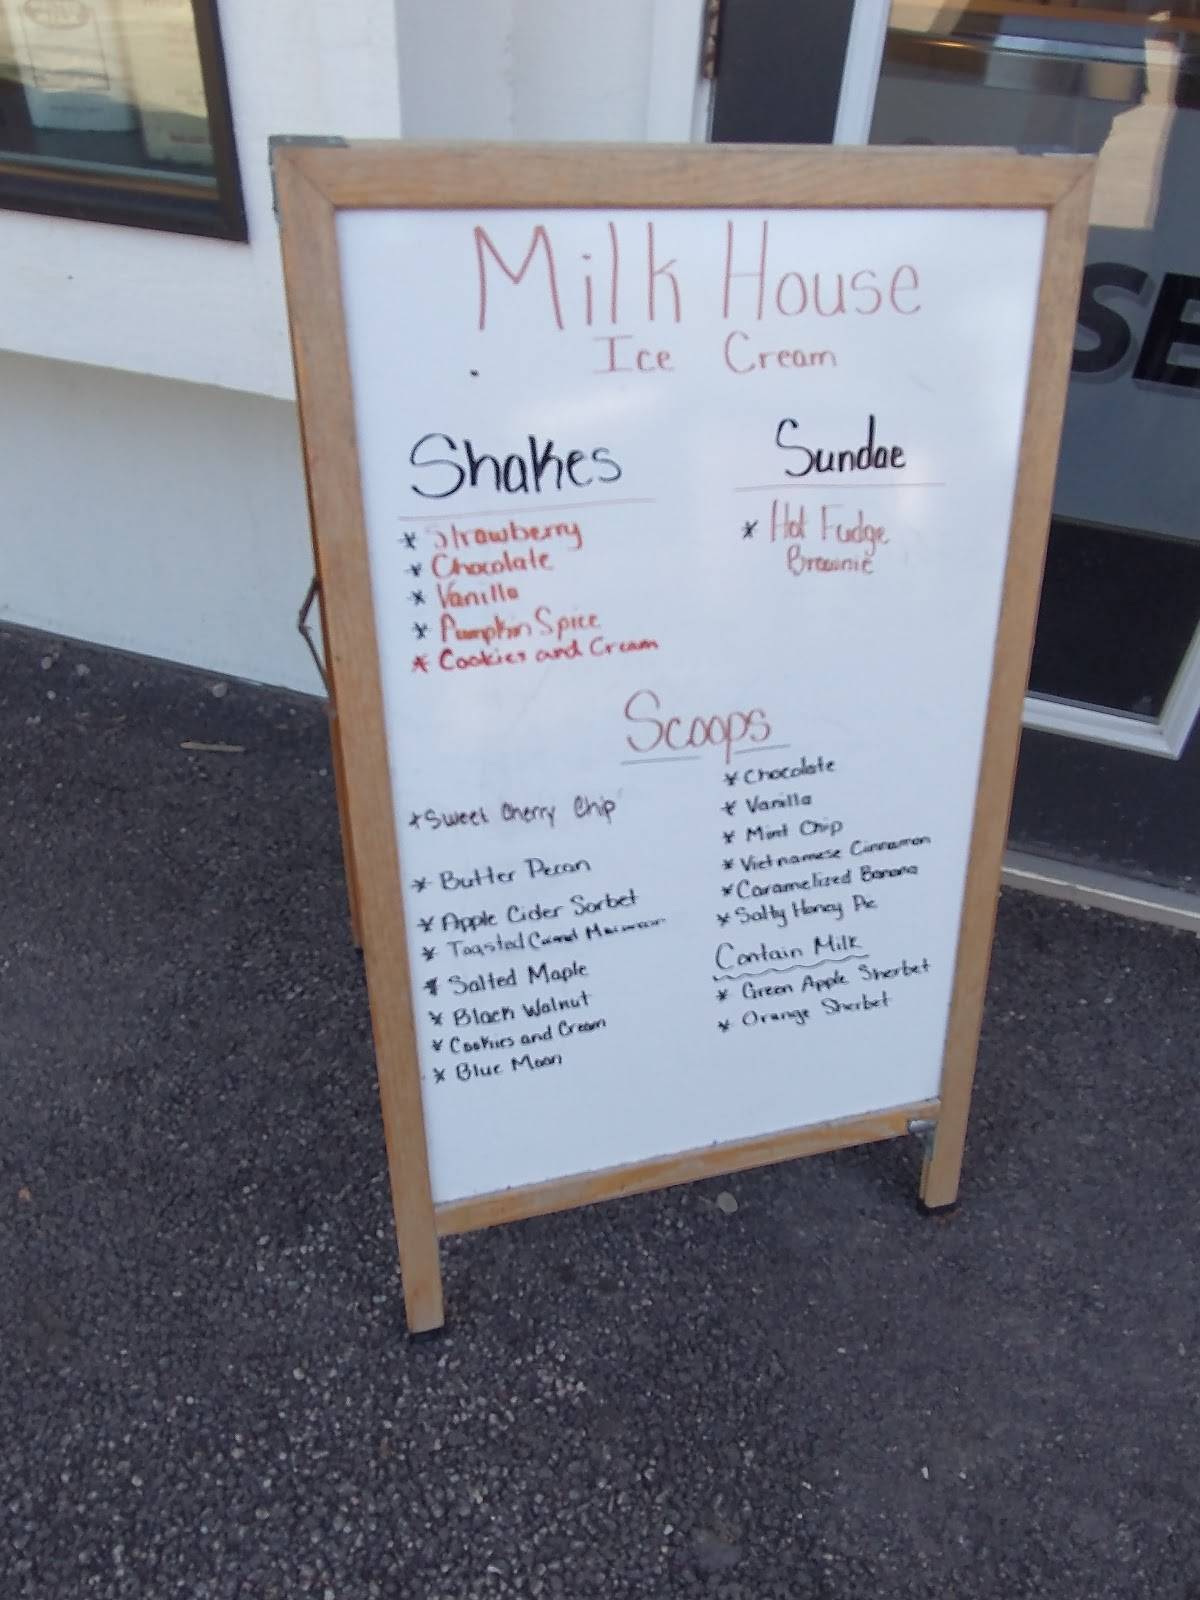 Milk House
Ice Cream
Shakes
* Strawberry
* Chocolate
* Vanilla
* Pumpkin Spice
* Cookies and Cream
Sundae
* Hot Fudge
Brownie
Scoops
* Sweet Cherry Chip
* Butter Pecan
* Apple Cider Sorbet
* Toasted Caramel
* Salted Maple
* Black Walnut
* Cookies and Cream
* Blue Moon
* Chocolate
* Vanilla
* Mint Chip
* Vietnamese Cinnamon
* Caramelized Banana
* Salty Honey Pie
Contain Milk
* Green Apple Sherbet
* Orange Sherbet
SE